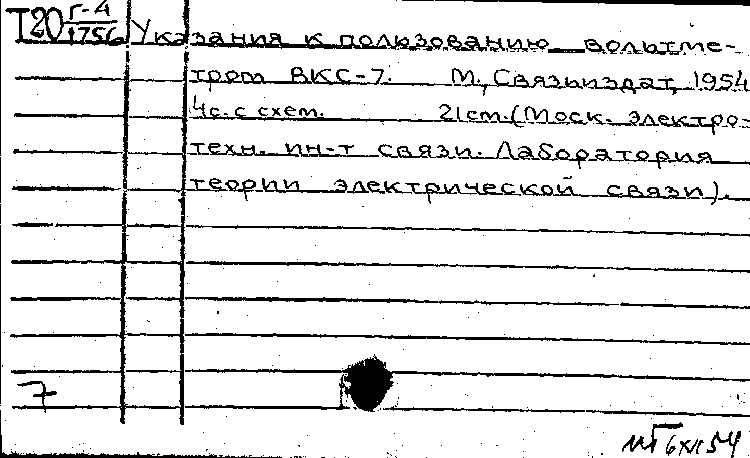 Т20 Г-4/1756 Указания к пользованию вольтме-
тром ВКС-7. М., Связьиздат, 1954
4с. с схем. 21cm. (Моск. электро-
техн. ин-т связи. Лаборатория
теории электрической связи).
7
6 XII 54